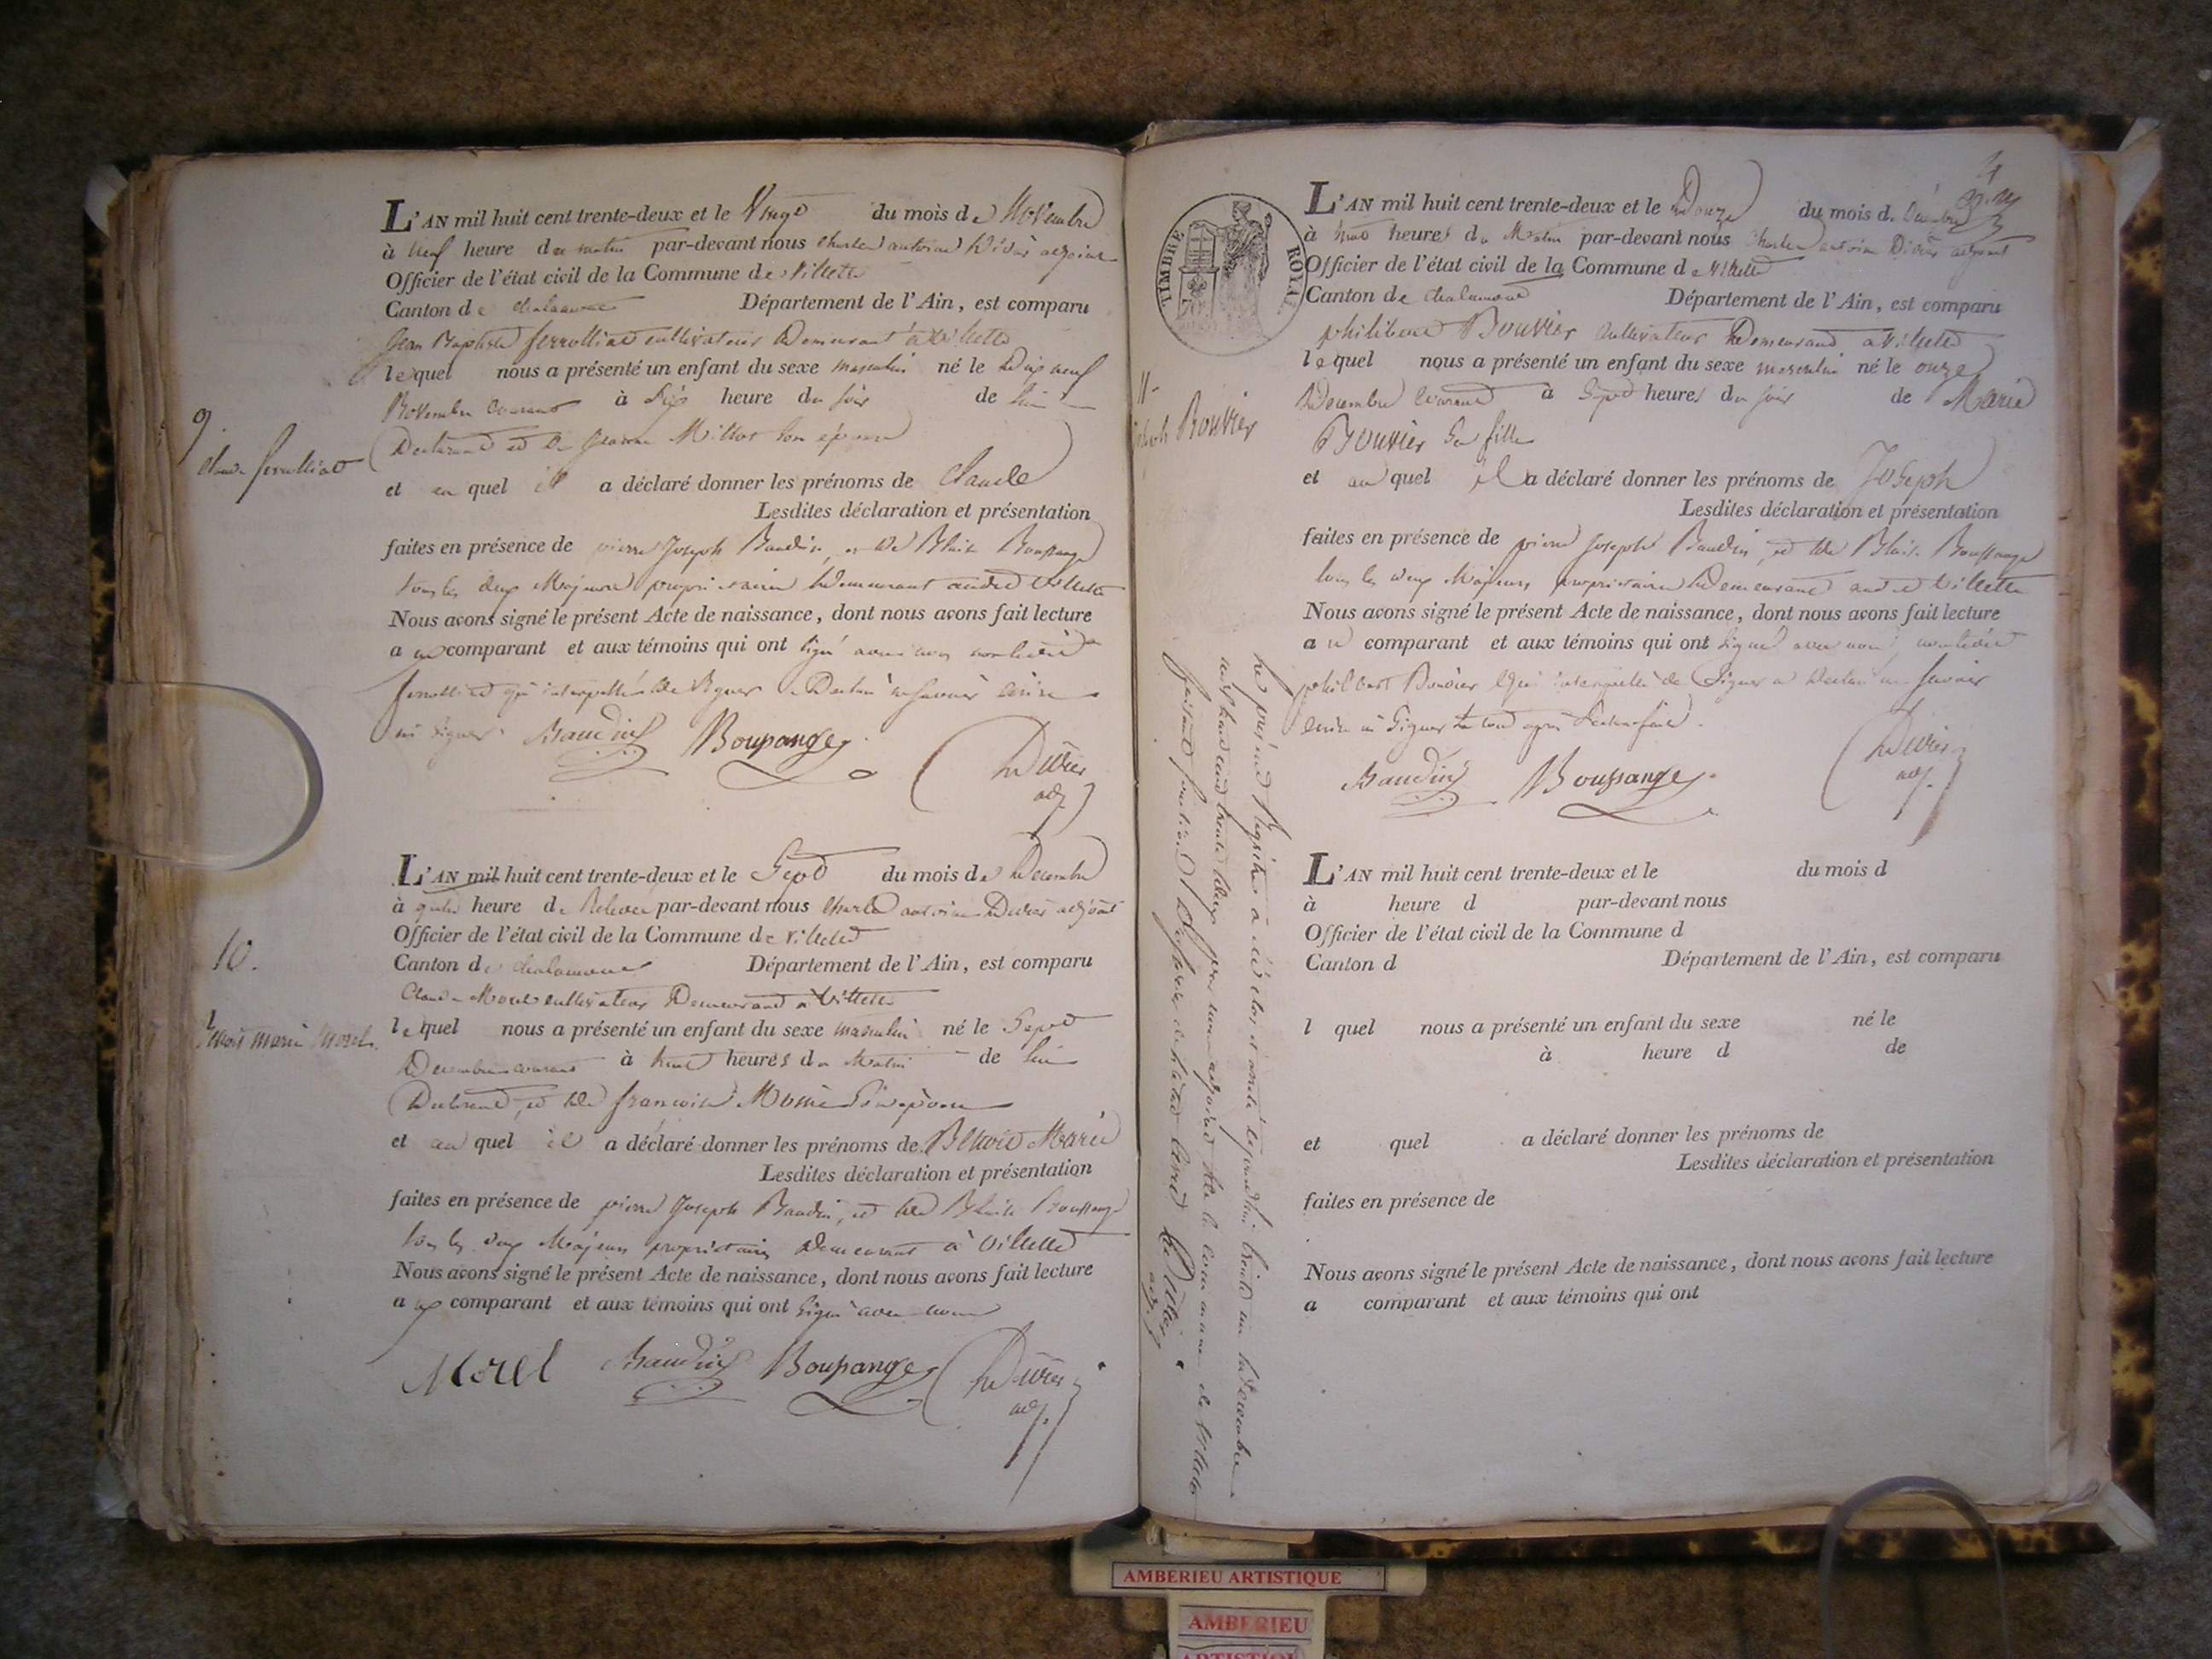 L'AN mil huit cent trente-deux et le Vingt du mois de Novembre
à neuf heure du matin par-devant nous charles antoine Divés adjoint
Officier de l'état civil de la Commune de Villette
Canton de chalamont Département de l'Ain, est comparu
Jean Baptiste ferrolliat cultivateur Demeurant à Villette
lequel nous a présenté un enfant du sexe masculin né le Dix neuf
Novembre courant à Six heure du soir de lui
9.
Declarant et de jeanne Millot son épouse
claude ferrolliat
et au quel il a déclaré donner les prénoms de claude
Lesdites déclaration et présentation
faites en présence de pierre Joseph Baudin, et de Blaise Boussange
tous les deux Majeurs propriétaires Demeurant audit Villette
Nous avons signé le présent Acte de naissance, dont nous avons fait lecture
au comparant et aux témoins qui ont signé avec nous non ledit
ferrolliat qui interpellé de signer a Declaré ne savoir écrire
ni signer Baudin Boussange
adj
L'AN mil huit cent trente-deux et le Sept du mois de Decembre
à heure de Relevée par-devant nous charles antoine adjoint
Officier de l'état civil de la Commune de Villette
10.
Canton de chalamont Département de l'Ain, est comparu
Claude Morel cultivateur Demeurant à Villette
Benoit marie Morel
lequel nous a présenté un enfant du sexe masculin né le Sept
Decembre courant à heures du Matin de lui
Declarant, et de francoise son épouse
et au quel il a déclaré donner les prénoms de Benoit Marie
Lesdites déclaration et présentation
faites en présence de pierre Joseph Baudin, et de Blaise Boussange
tous les deux Majeurs propriétaires Demeurant à Villette
Nous avons signé le présent Acte de naissance, dont nous avons fait lecture
au comparant et aux témoins qui ont signé avec nous
Morel Baudin Boussange
adj.
TIMBRE ROYAL
L'AN mil huit cent trente-deux et le Douze du mois d. Décembre
à heures du Matin par-devant nous charles antoine adjoint
Officier de l'état civil de la Commune de Villette
Canton de chalamont Département de l'Ain, est comparu
philibert Bouvier cultivateur Demeurant à Villette
lequel nous a présenté un enfant du sexe masculin né le onze
11
Decembre Courant à Sept heures du soir de Marie
Joseph Bouvier
Bouvier Sa fille
et au quel il a déclaré donner les prénoms de Joseph
Lesdites déclaration et présentation
faites en présence de pierre Joseph Baudin, et de Blaise Boussange
tous les deux Majeurs propriétaires Demeurant audit Villette
Nous avons signé le présent Acte de naissance, dont nous avons fait lecture
au comparant et aux témoins qui ont signé avec nous, non ledit
philibert Bouvier qui interpellé de Signer a Declaré ne savoir
écrire ni Signer le tout après Lecture faite.
Baudin Boussange
adj.
Le présent Registre a été clos et arrêté cejourd'hui trente un Decembre
mil huit cent trente deux par nous adjoint de la commune de Villette
faisant fonction d'officier de l'état civil
adj.
L'AN mil huit cent trente-deux et le du mois d
à heure d par-devant nous
Officier de l'état civil de la Commune d
Canton d Département de l'Ain, est comparu
l quel nous a présenté un enfant du sexe né le
à heure d de
et quel a déclaré donner les prénoms de
Lesdites déclaration et présentation
faites en présence de
Nous avons signé le présent Acte de naissance, dont nous avons fait lecture
a comparant et aux témoins qui ont
AMBERIEU ARTISTIQUE
AMBERIEU
ARTISTIQUE